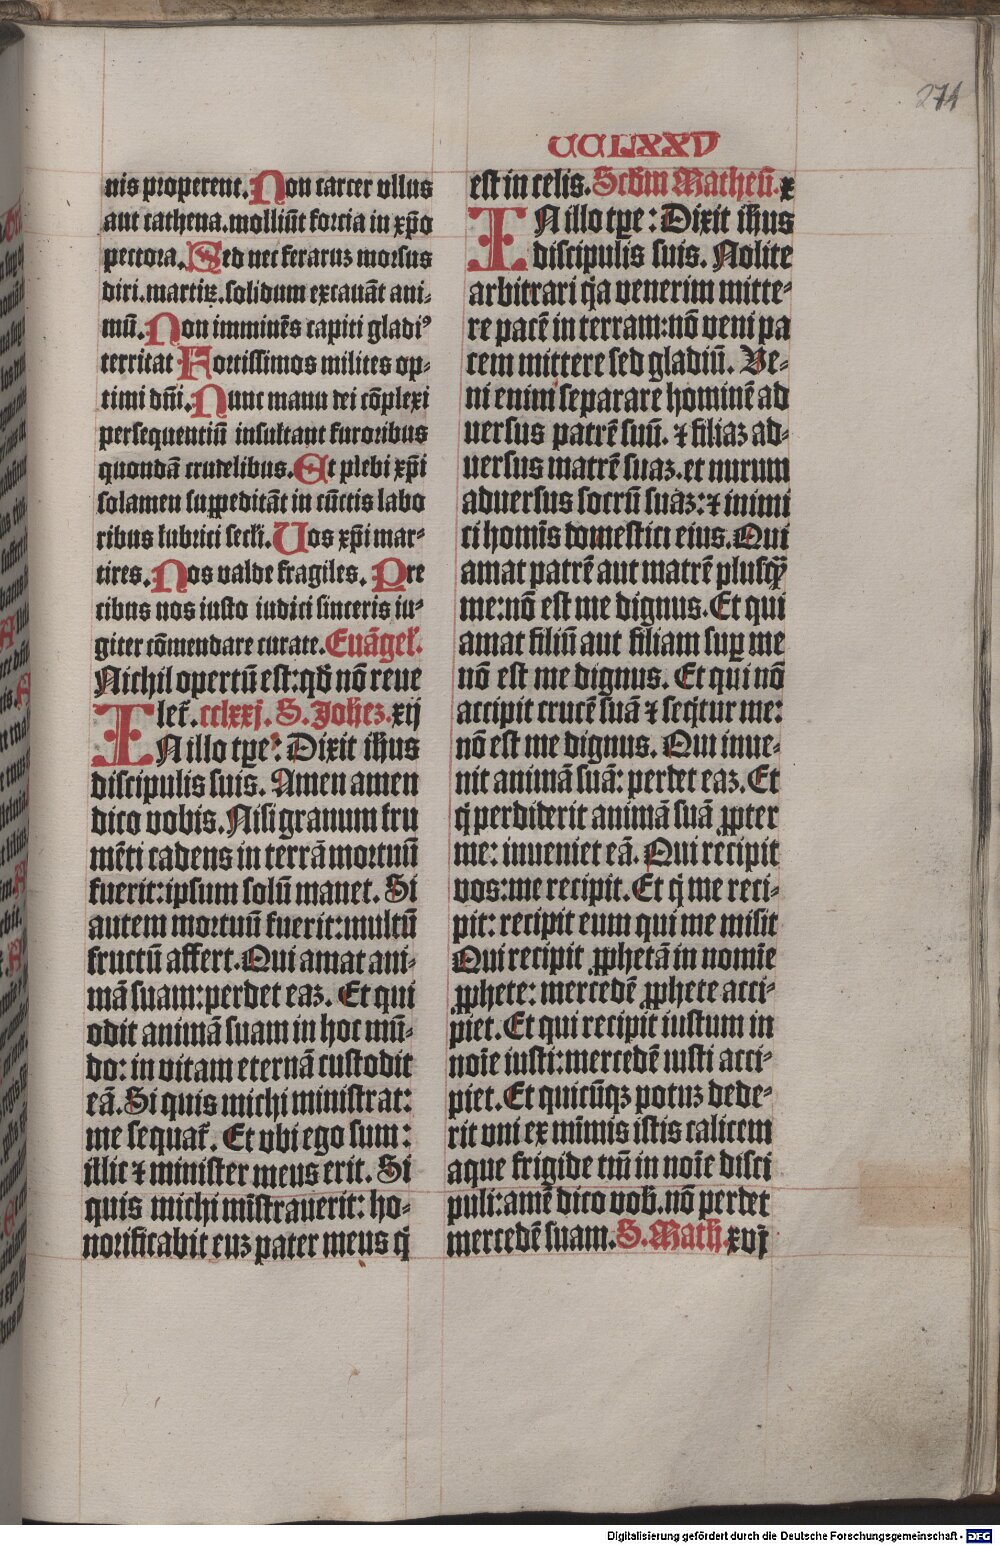 274
CCLXXV
nis properent. Non carcer vllus
aut cathena. molliūt forcia in xp̄o
pectora. Sed nec feraruꝫ morsus
diri. martiꝝ. solidum excauāt ani⸗
mū. Non imminēs capiti gladiꝰ
territat Fortissimos milites op⸗
timi dn̄i. Nunc manu dei cōplexi
persequentiū insultant furoribus
quondā crudelibus. Et plebi xp̄i
solamen suppeditāt in cūctis labo
ribus lubrici secl̄i. Uos xp̄i mar⸗
tires. Nos valde fragiles. Pre
cibus nos iusto iudici sinceris iu⸗
giter cōmendare curate. Euāgel̄.
Nichil opertū est: qd̄ nō reue
let̄. cclxxj. S. Joheꝫ. xij
IN illo tp̄e: Dixit ih̄us
discipulis suis. Amen amen
dico vobis. Nisi granum fru
mēti cadens in terrā mortuū
fuerit: ipsum solū manet. Si
autem mortuū fuerit: multū
fructū affert. Qui amat ani⸗
mā suam: perdet eaꝫ. Et qui
odit animā suam in hoc mū⸗
do: in vitam eternā custodit
eā. Si quis michi ministrat:
me sequat̄. Et vbi ego sum:
illic ⁊ minister meus erit. Si
quis michi mīstrauerit: ho⸗
norificabit euꝫ pater meus q̄
est in celis. Scd̄m Matheū. x
IN illo tp̄e: Dixit ih̄us
discipulis suis. Nolite
arbitrari q̄a venerim mitte⸗
re pacē in terram: nō veni pa
cem mittere sed gladiū. Ve⸗
ni enim separare hominē ad
uersus patrē suū. ⁊ filiaꝫ ad⸗
uersus matrē suaꝫ. et nurum
aduersus socrū suaꝫ: ⁊ inimi
ci homīs domestici eius. Qui
amat patrē aut matrē plusqꝫ̄
me: nō est me dignus. Et qui
amat filiū aut filiam suꝑ me
nō est me dignus. Et qui nō
accipit crucē suā ⁊ seq̄tur me:
nō est me dignus. Qui inue⸗
nit animā suā: perdet eaꝫ. Et
q̄ perdiderit animā suā ꝓpter
me: inueniet eā. Qui recipit
vos: me recipit. Et q̄ me reci⸗
pit: recipit eum qui me misit
Qui recipit ꝓphetā in nomīe
ꝓphete: mercedē ꝓphete acci⸗
piet. Et qui recipit iustum in
noīe iusti: mercedē iusti acci⸗
piet. Et quicūqꝫ potuꝫ dede⸗
rit vni ex mīmis istis calicem
aque frigide tm̄ in noīe disci
puli: amē dico vob̄. nō perdet
mercedē suam. S. Math̄. xvj
Digitalisierung gefördert durch die Deutsche Forschungsgemeinschaft - DFG